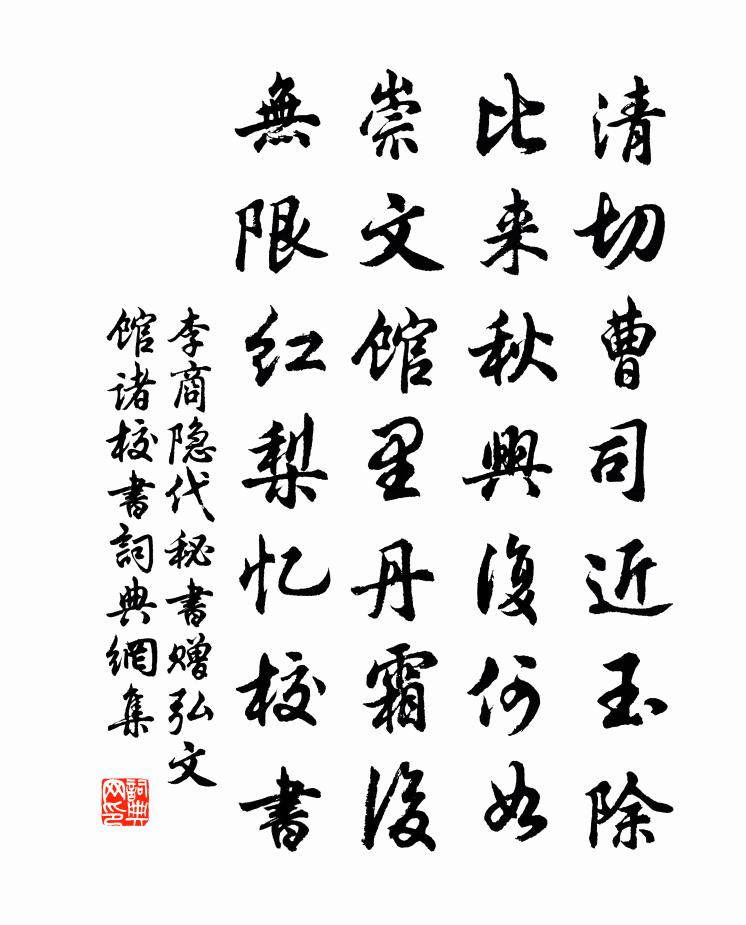 清切曹司近玉除
比来秋興復何如
崇文馆里丹霜後
無限红梨忆校書
李商隐代秘書赠弘文
馆诸校書詞典網集
詞典
网印